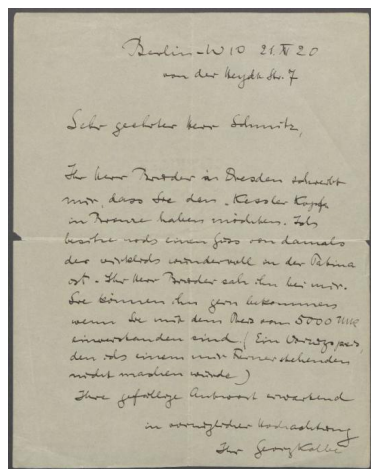 Berlin-W 10 21. IV 20
von der Heydt Str. 7
Sehr geehrter Herr Schmitz,
Ihr Herr Bruder in Dresden schreibt
mir, dass Sie den Kessler Kopf
in Bronze haben möchten. Ich
besitze noch einen Guss von damals
der wirklich wundervoll in der Patina
ist. Ihr Herr Bruder sah ihn bei mir.
Sie können ihn gern bekommen
wenn Sie mit dem Preis von 5000 Mk
einverstanden sind. (Ein Vorzugspreis,
den ich einem mir Fernerstehenden
nicht machen würde)
Ihre gefällige Antwort erwartend
in vorzüglicher Hochachtung
Ihr Georg Kolbe